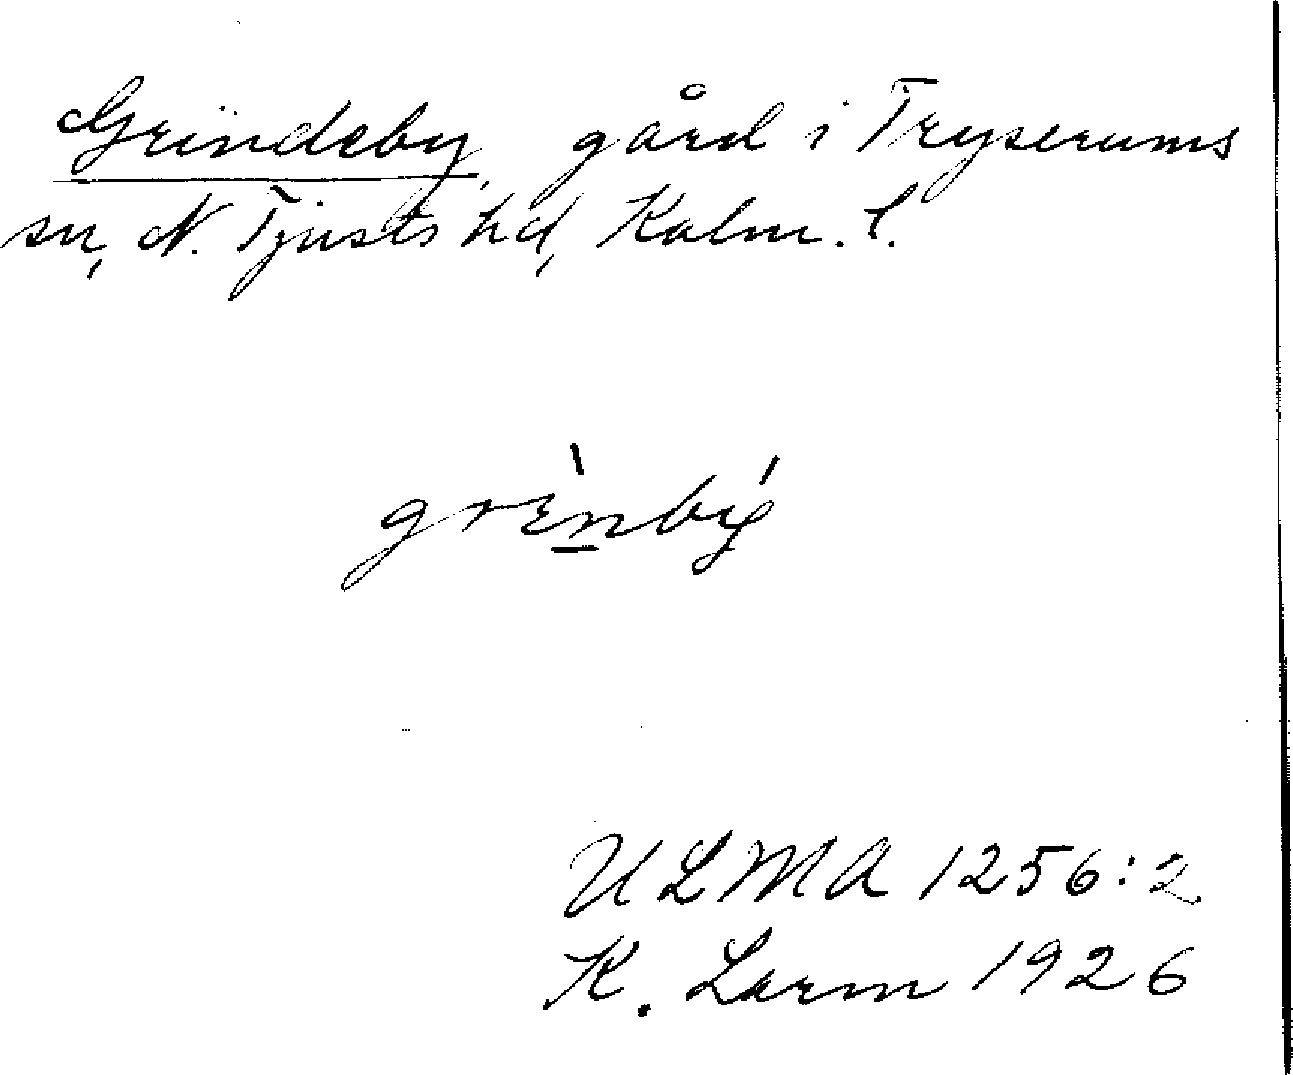 Grindeby, gård i Tryserums
sn, N. Tjusts hd, Kalm. l.
grènbý
ULMA 1256:2
K. Larm 1926